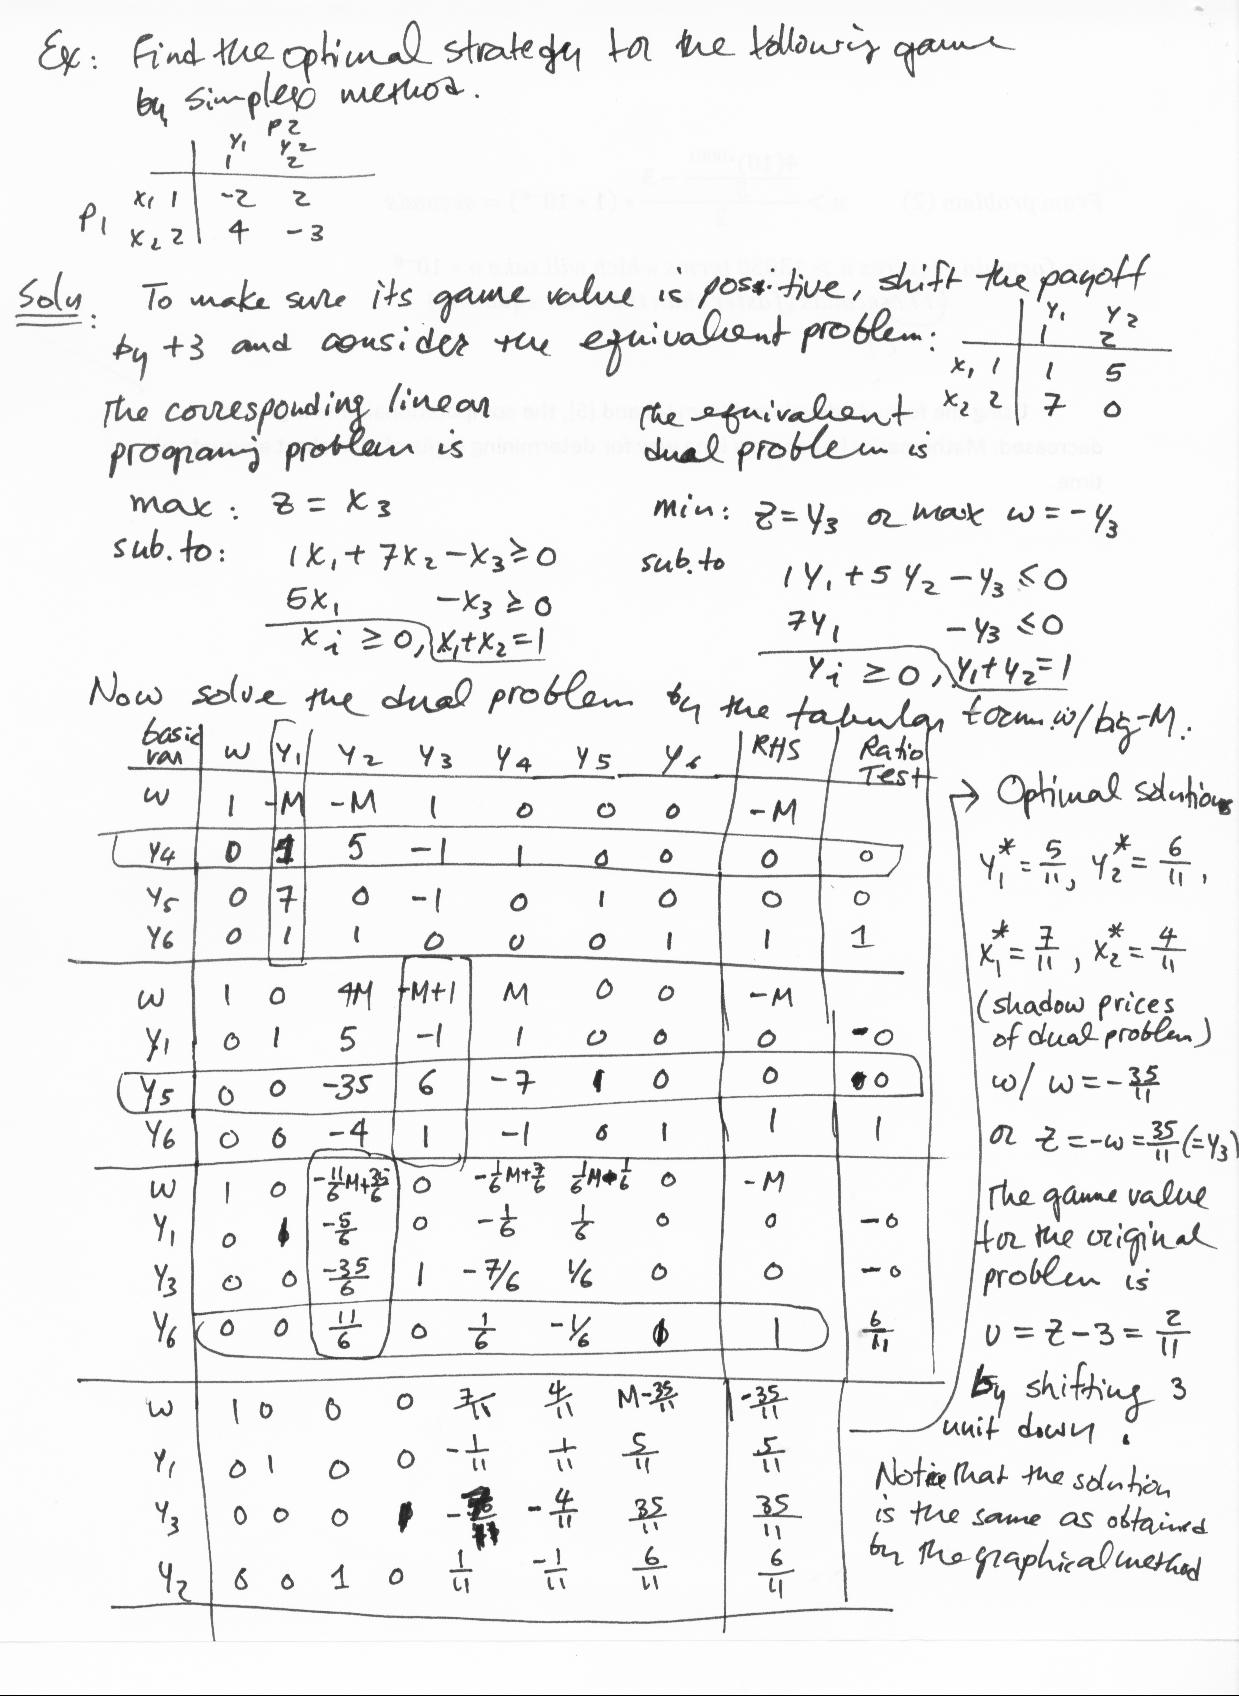 Ex: Find the optimal strategy for the following game
by simplex method.
P2
Y1 Y2
1 2
P1
x1 1 -2 2
x2 2 4 -3
Soln. To make sure its game value is positive, shift the payoff
by +3 and consider the equivalent problem:
Y1 Y2
1 2
x1 1 1 5
x2 2 7 0
The corresponding linear
programing problem is
max: z = x3
sub. to: 1x1 + 7x2 - x3 ≥ 0
5x1 - x3 ≥ 0
xi ≥ 0, x1+x2=1
The equivalent
dual problem is
min: z=y3 or max w=-y3
sub. to 1y1 + 5y2 - y3 ≤ 0
7y1 - y3 ≤ 0
yi ≥ 0, y1+y2=1
Now solve the dual problem by the tabular form w/ big-M:
basic var w y1 y2 y3 y4 y5 y6 RHS Ratio Test
w 1 -M -M 1 0 0 0 -M
y4 0 1 5 -1 1 0 0 0 0
y5 0 7 0 -1 0 1 0 0 0
y6 0 1 1 0 0 0 1 1 1
w 1 0 4M -M+1 M 0 0 -M
y1 0 1 5 -1 1 0 0 0 -0
y5 0 0 -35 6 -7 1 0 0 0
y6 0 0 -4 1 -1 0 1 1 1
w 1 0 -11/6M+35/6 0 -1/6M+7/6 1/6M-1/6 0 -M
y1 0 1 -5/6 0 -1/6 1/6 0 0 -0
y3 0 0 -35/6 1 -7/6 1/6 0 0 -0
y6 0 0 11/6 0 1/6 -1/6 1 1 6/11
w 1 0 0 0 7/11 4/11 M-35/11 -35/11
y1 0 1 0 0 -1/11 1/11 5/11 5/11
y3 0 0 0 1 -4/11 35/11 35/11
y2 0 0 1 0 1/11 -1/11 6/11 6/11
→ Optimal solutions
y1* = 5/11, y2* = 6/11,
x1* = 7/11, x2* = 4/11
(shadow prices
of dual problem)
w/ w = -35/11
or z = -w = 35/11 (=y3)
The game value
for the original
problem is
v = z - 3 = 2/11
by shifting 3
unit down.
Notice that the solution
is the same as obtained
by the graphical method